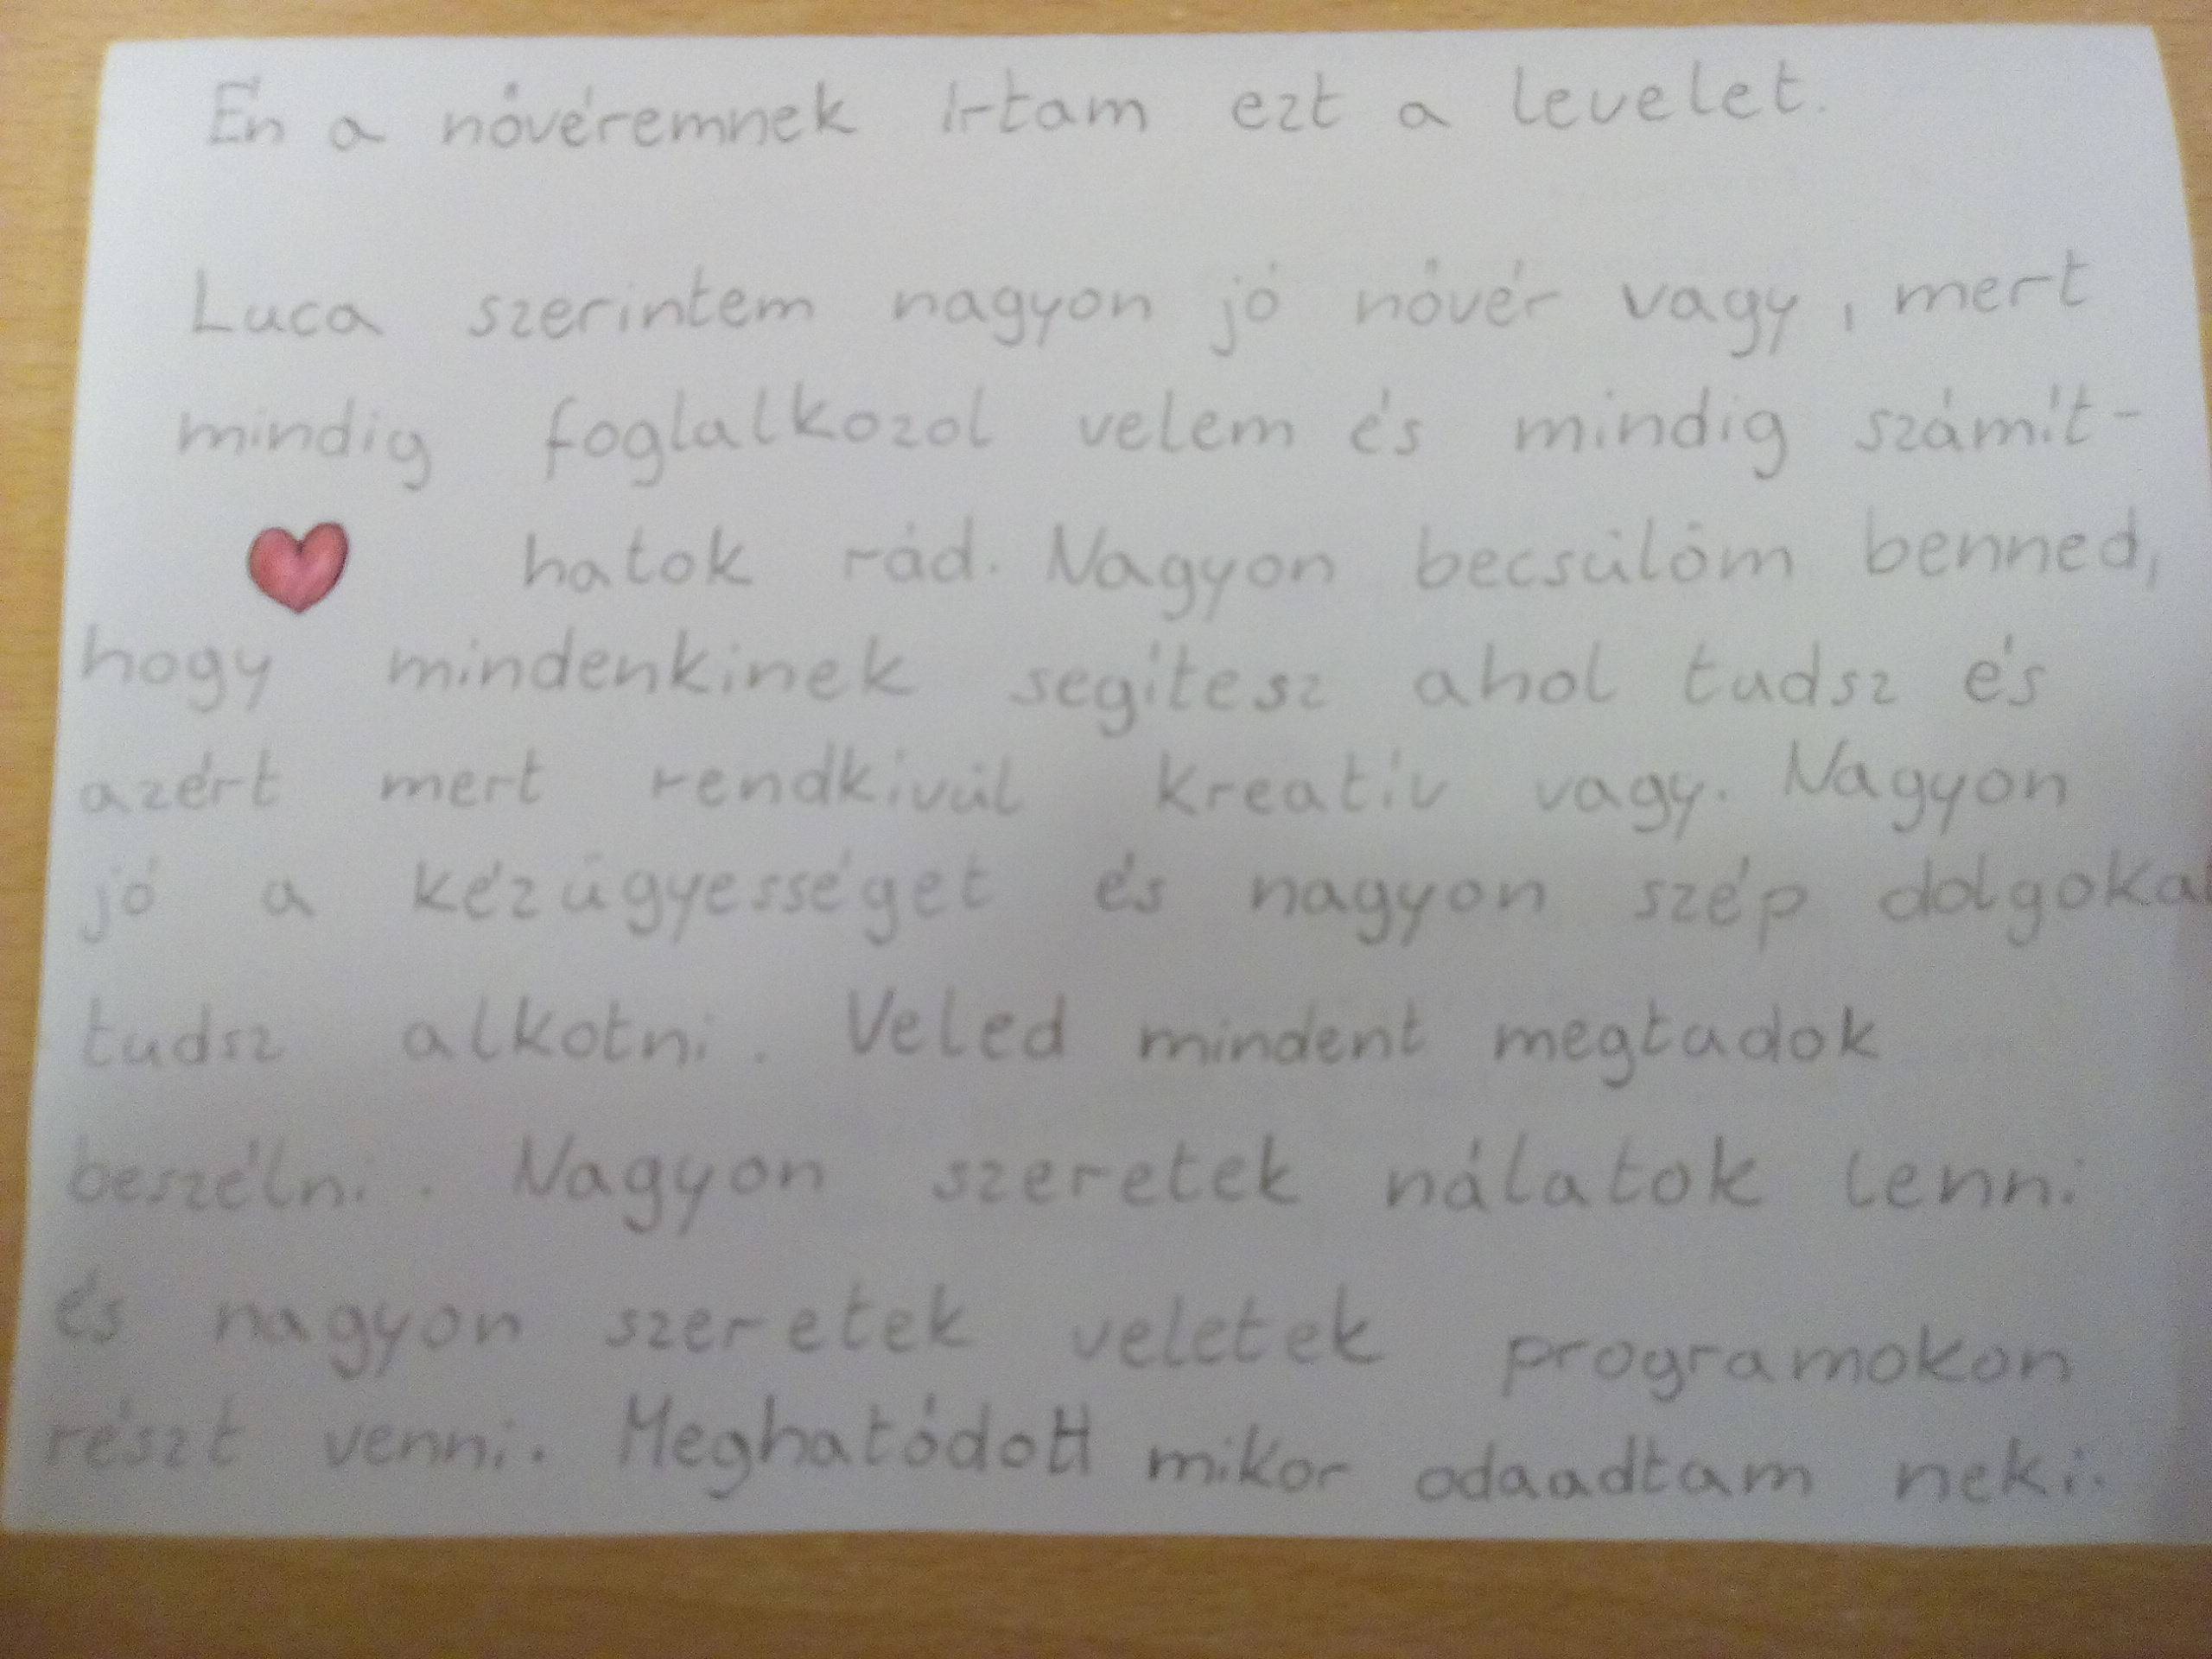 Én a nővéremnek írtam ezt a levelet.
Luca szerintem nagyon jó nővér vagy, mert
mindig foglalkozol velem és mindig számít-
hatok rád. Nagyon becsülöm benned,
hogy mindenkinek segítesz ahol tudsz és
azért mert rendkívül kreatív vagy. Nagyon
jó a kézügyességet és nagyon szép dolgokat
tudsz alkotni. Veled mindent megtudok
beszélni. Nagyon szeretek nálatok lenni
és nagyon szeretek veletek programokon
részt venni. Meghatódott mikor odaadtam neki.